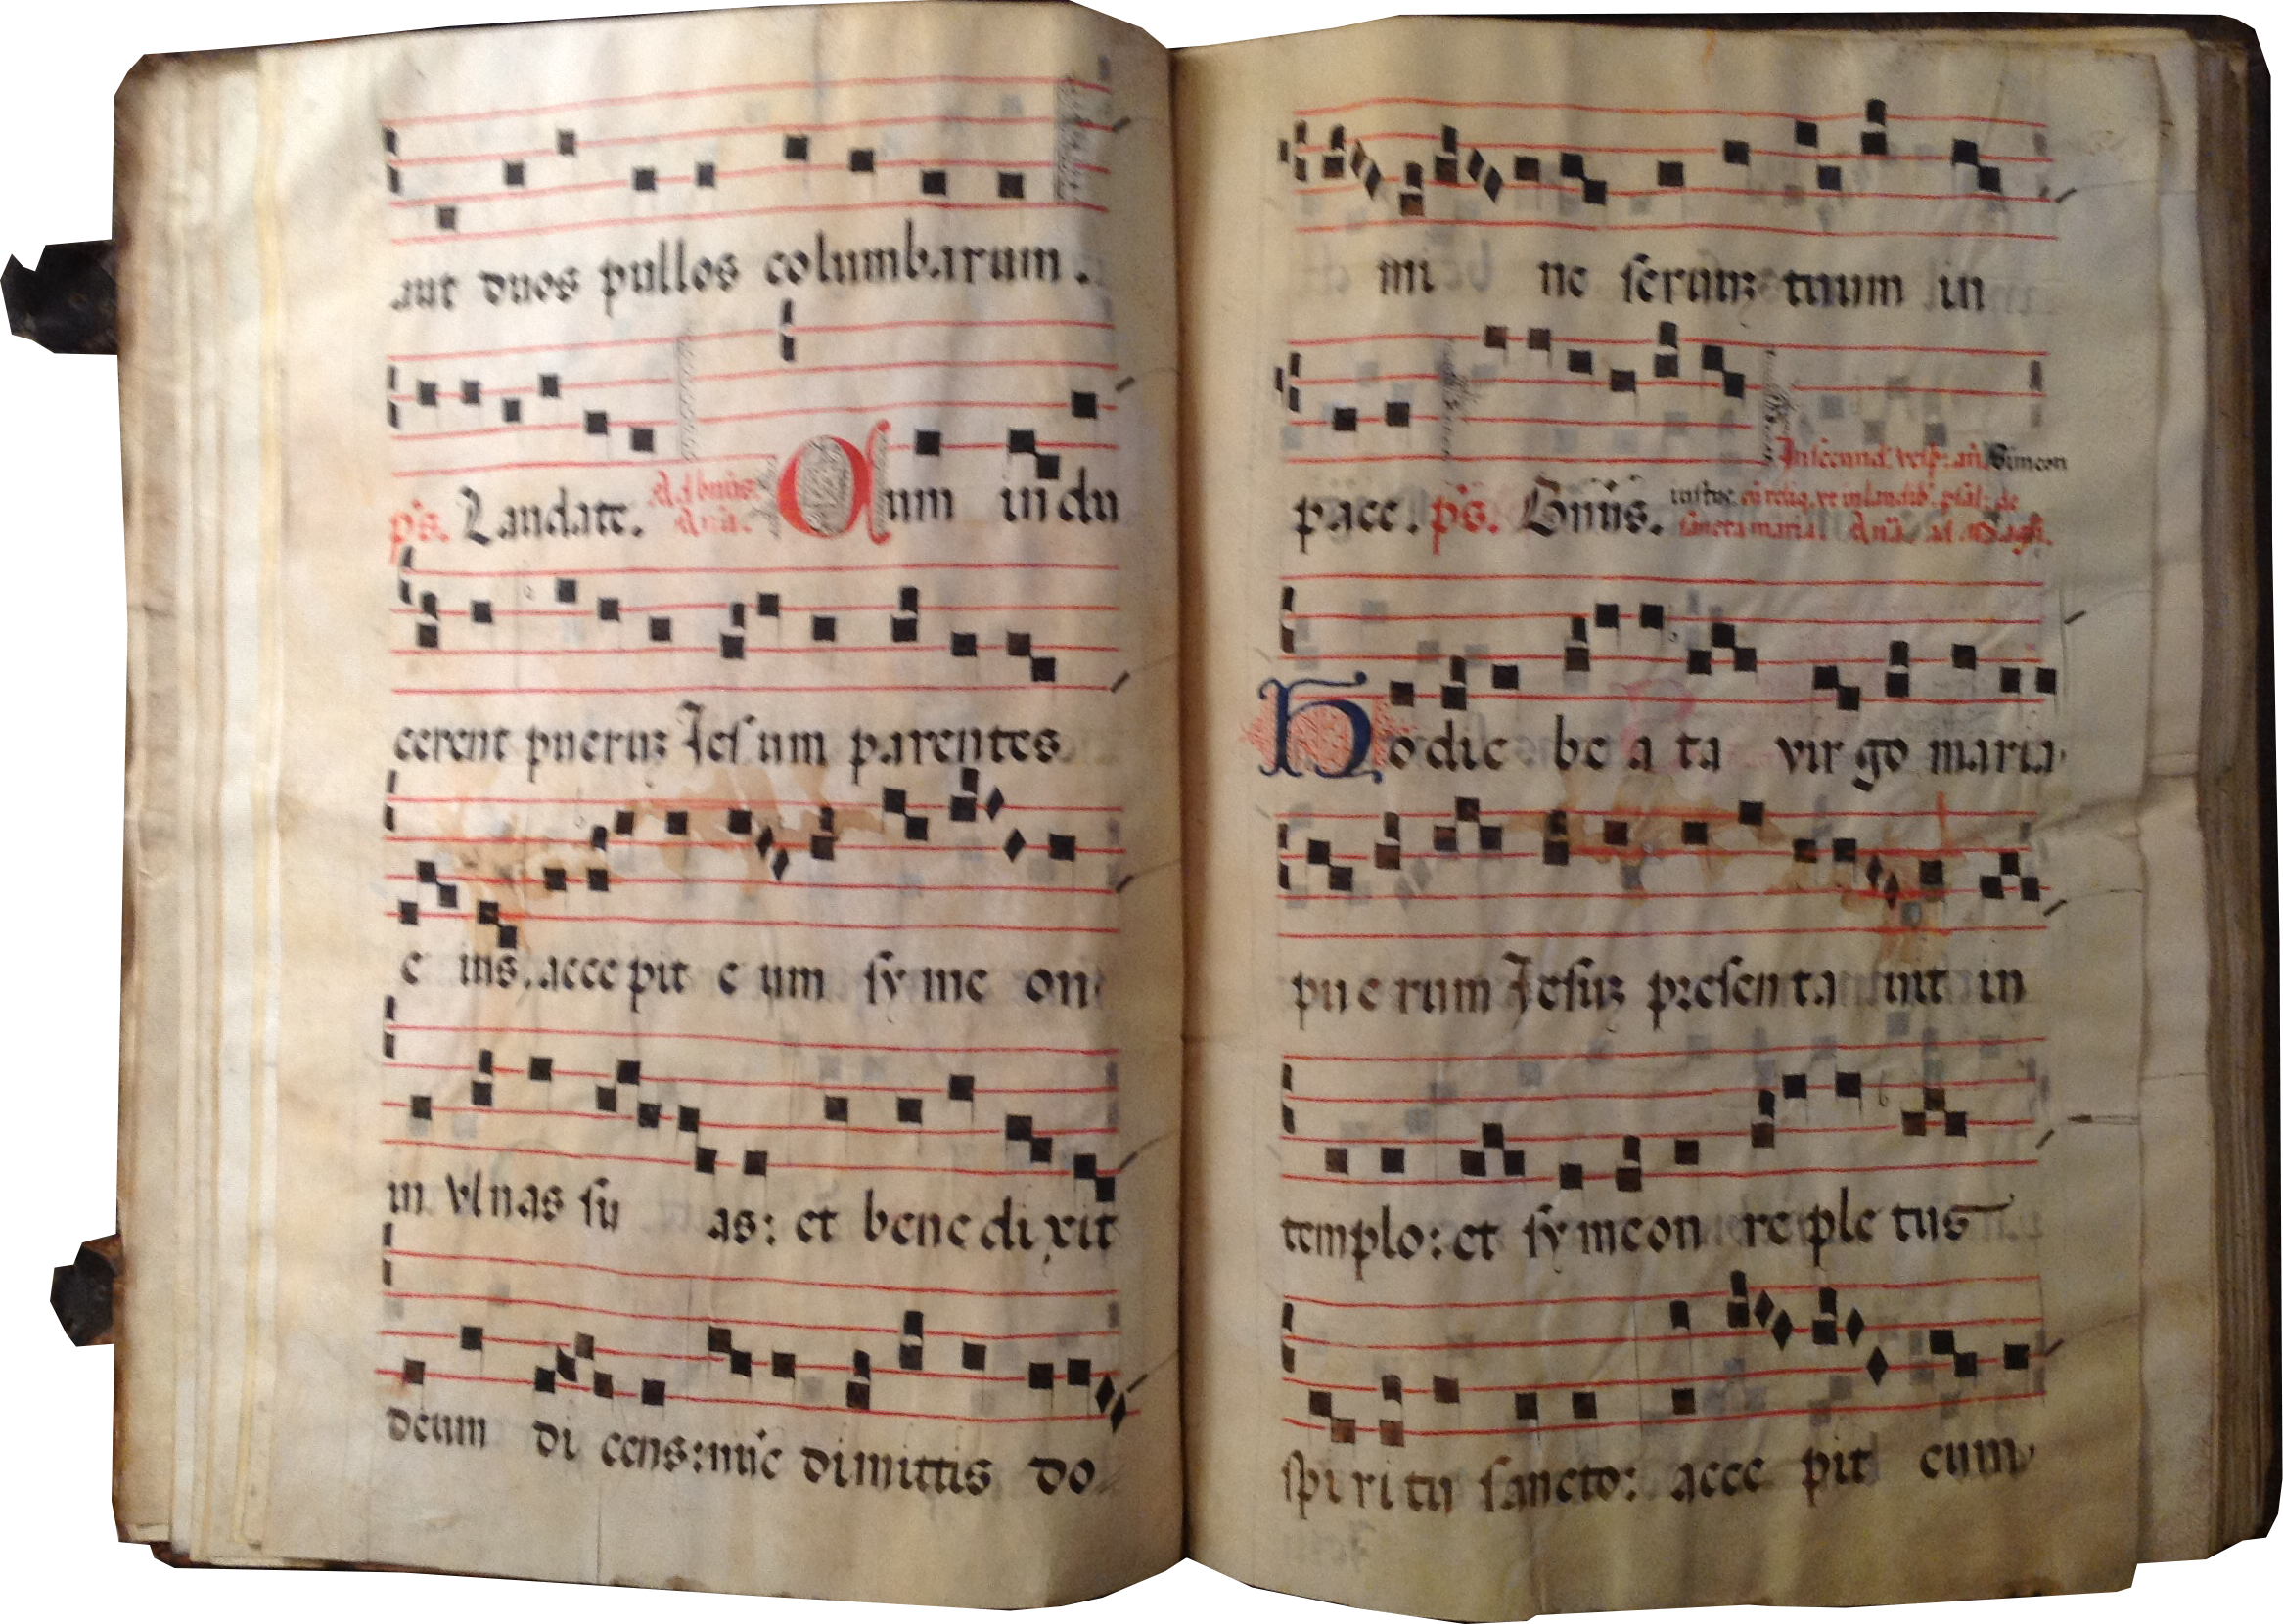 aut duos pullos columbarum.
ps. Laudate. Ad bnüs. Anã. Cum indu
cerent pueruz Jesum parentes
e ius. acce pit e um sy me on
in vlnas su as: et bene di xit
deum di cens: nũc dimittis do
mi ne seruuz tuum in
pace. ps. Bnüs. In secund. vesp: añ. Simeon
iustus. cũ reliq. vt in laudib'. psal: de
sancta maria. Anã. ad Magñ.
Hodie be a ta vir go maria
pu e rum Jesuz presen ta uit in
templo: et sy meon re ple tus
spi ri tu sancto: acce pit eum